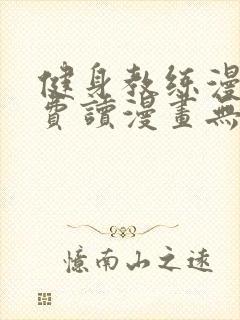 健身教练漫
費讀漫畫無
憶南山之遠